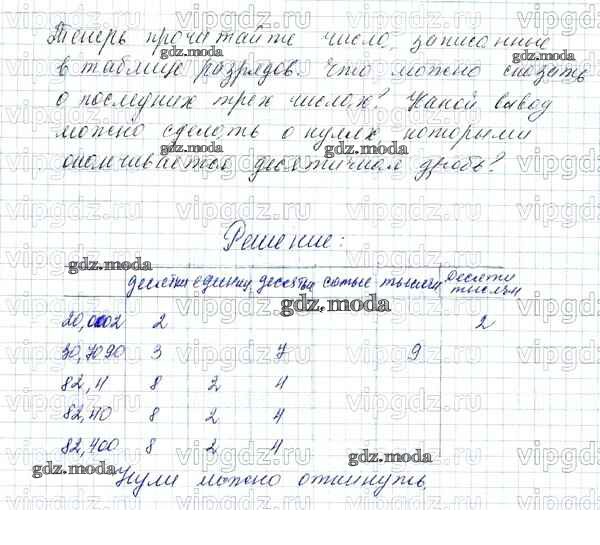 Теперь прочитайте числа, записанные
в таблице разрядов. Что можно сказать
о последних трех числах? Какой вывод
можно сделать о нулях, которыми
оканчивается десятичная дробь?
Решение:
десятки единиц десяты сотые тысячн десяти тысячн
20,0002 2 2
30,7090 3 7 9
82,4 8 2 4
82,40 8 2 4
82,400 8 2 4
Нули можно откинуть.
gdz.moda
vipgdz.ru